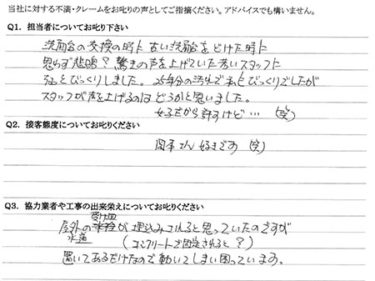 当社に対する不満・クレームをお叱りの声としてご指摘ください。アドバイスでも構いません。
Q1．担当者についてお叱り下さい
洗面台の交換の時に 古い洗面台をどけた時に
思わず悲鳴？驚きの声を上げていた若いスタッフに
ちょっとびっくりしました。25年分の汚れで私もびっくりでしたが
スタッフが声を上げるのは どうかと思いました。
女子だから許すけど…（笑）
Q2．接客態度についてお叱りください
岡本さん 好きです（笑）
Q3．協力業者や工事の出来栄えについてお叱りください
屋外の が埋込みされると思っていたのですが
水道 （コンクリートで固定されると？）
置いてあるだけなので動いてしまい困っています。